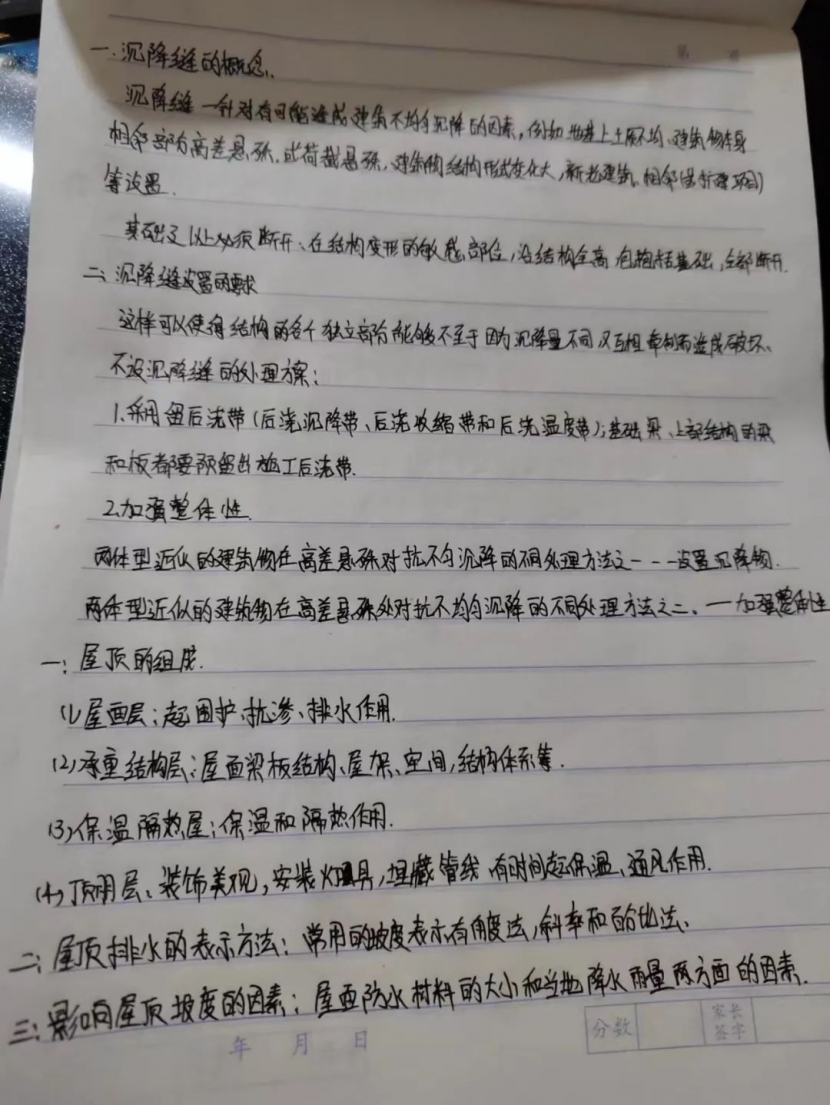 第 页
一.沉降缝的概念.
沉降缝—针对有可能造成建筑不均匀沉降的因素,(例如地基上土质不均、建筑物本身
相邻部分高差悬殊、或荷载悬殊,建筑物结构形式变化大,新老建筑、相邻
等设置.
基础及以上必须断开、在结构变形的敏感部位,沿结构全高包括基础,全部断开.
二、沉降缝设置的要求
这样可以使得结构的各个独立部分能够不至于因为沉降量不同又互相牵制而造成破坏.
不设沉降缝的处理方案:
1.采用留后浇带(后浇沉降带、后浇收缩带和后浇温度带);基础梁、上部结构的梁
和板都要预留出施工后浇带.
2.加强整体性.
两体型近似的建筑物在高差悬殊对抗不均沉降的不同处理方法之一---设置沉降
两体型近似的建筑物在高差悬殊处对抗不均匀沉降的不同处理方法之二、一加强整体性
一:屋顶的组成.
(1)屋面层;起围护、抗渗、排水作用.
(2)承重结构层;屋面梁板结构、屋架、空间,结构体系等.
(3)保温隔热层;保温和隔热作用.
(4)顶棚层、装饰美观,安装灯具,埋藏管线、有时间起保温、通风作用.
二;屋顶排水的表示方法:常用的坡度表示有角度法,斜率和百分比法.
三:影响屋顶坡度的因素;屋面防水材料的大小和当地降水雨量两方面的因素.
年 月 日
分数 家长签字